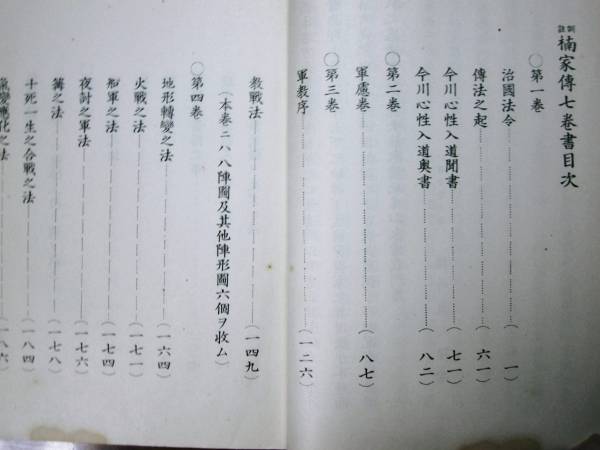 訓註 楠家傳七卷書目次
○第一卷
治國法令……………………(一)
傳法之起……………………(六一)
今川心性入道聞書……………………(七一)
今川心性入道奥書……………………(八二)
○第二卷
軍慮卷……………………(八七)
○第三卷
軍教序……………………(一二六)
教戰法……………………(一四九)
(本卷ニハ八陣圖及其他陣形圖六個ヲ收ム)
○第四卷
地形轉變之法……………………(一六四)
火戰之法……………………(一七一)
船軍之法……………………(一七四)
夜討之軍法……………………(一七六)
篝之法……………………(一七八)
十死一生之合戰之法……………………(一八四)
氣變應化之法……………………(一八六)